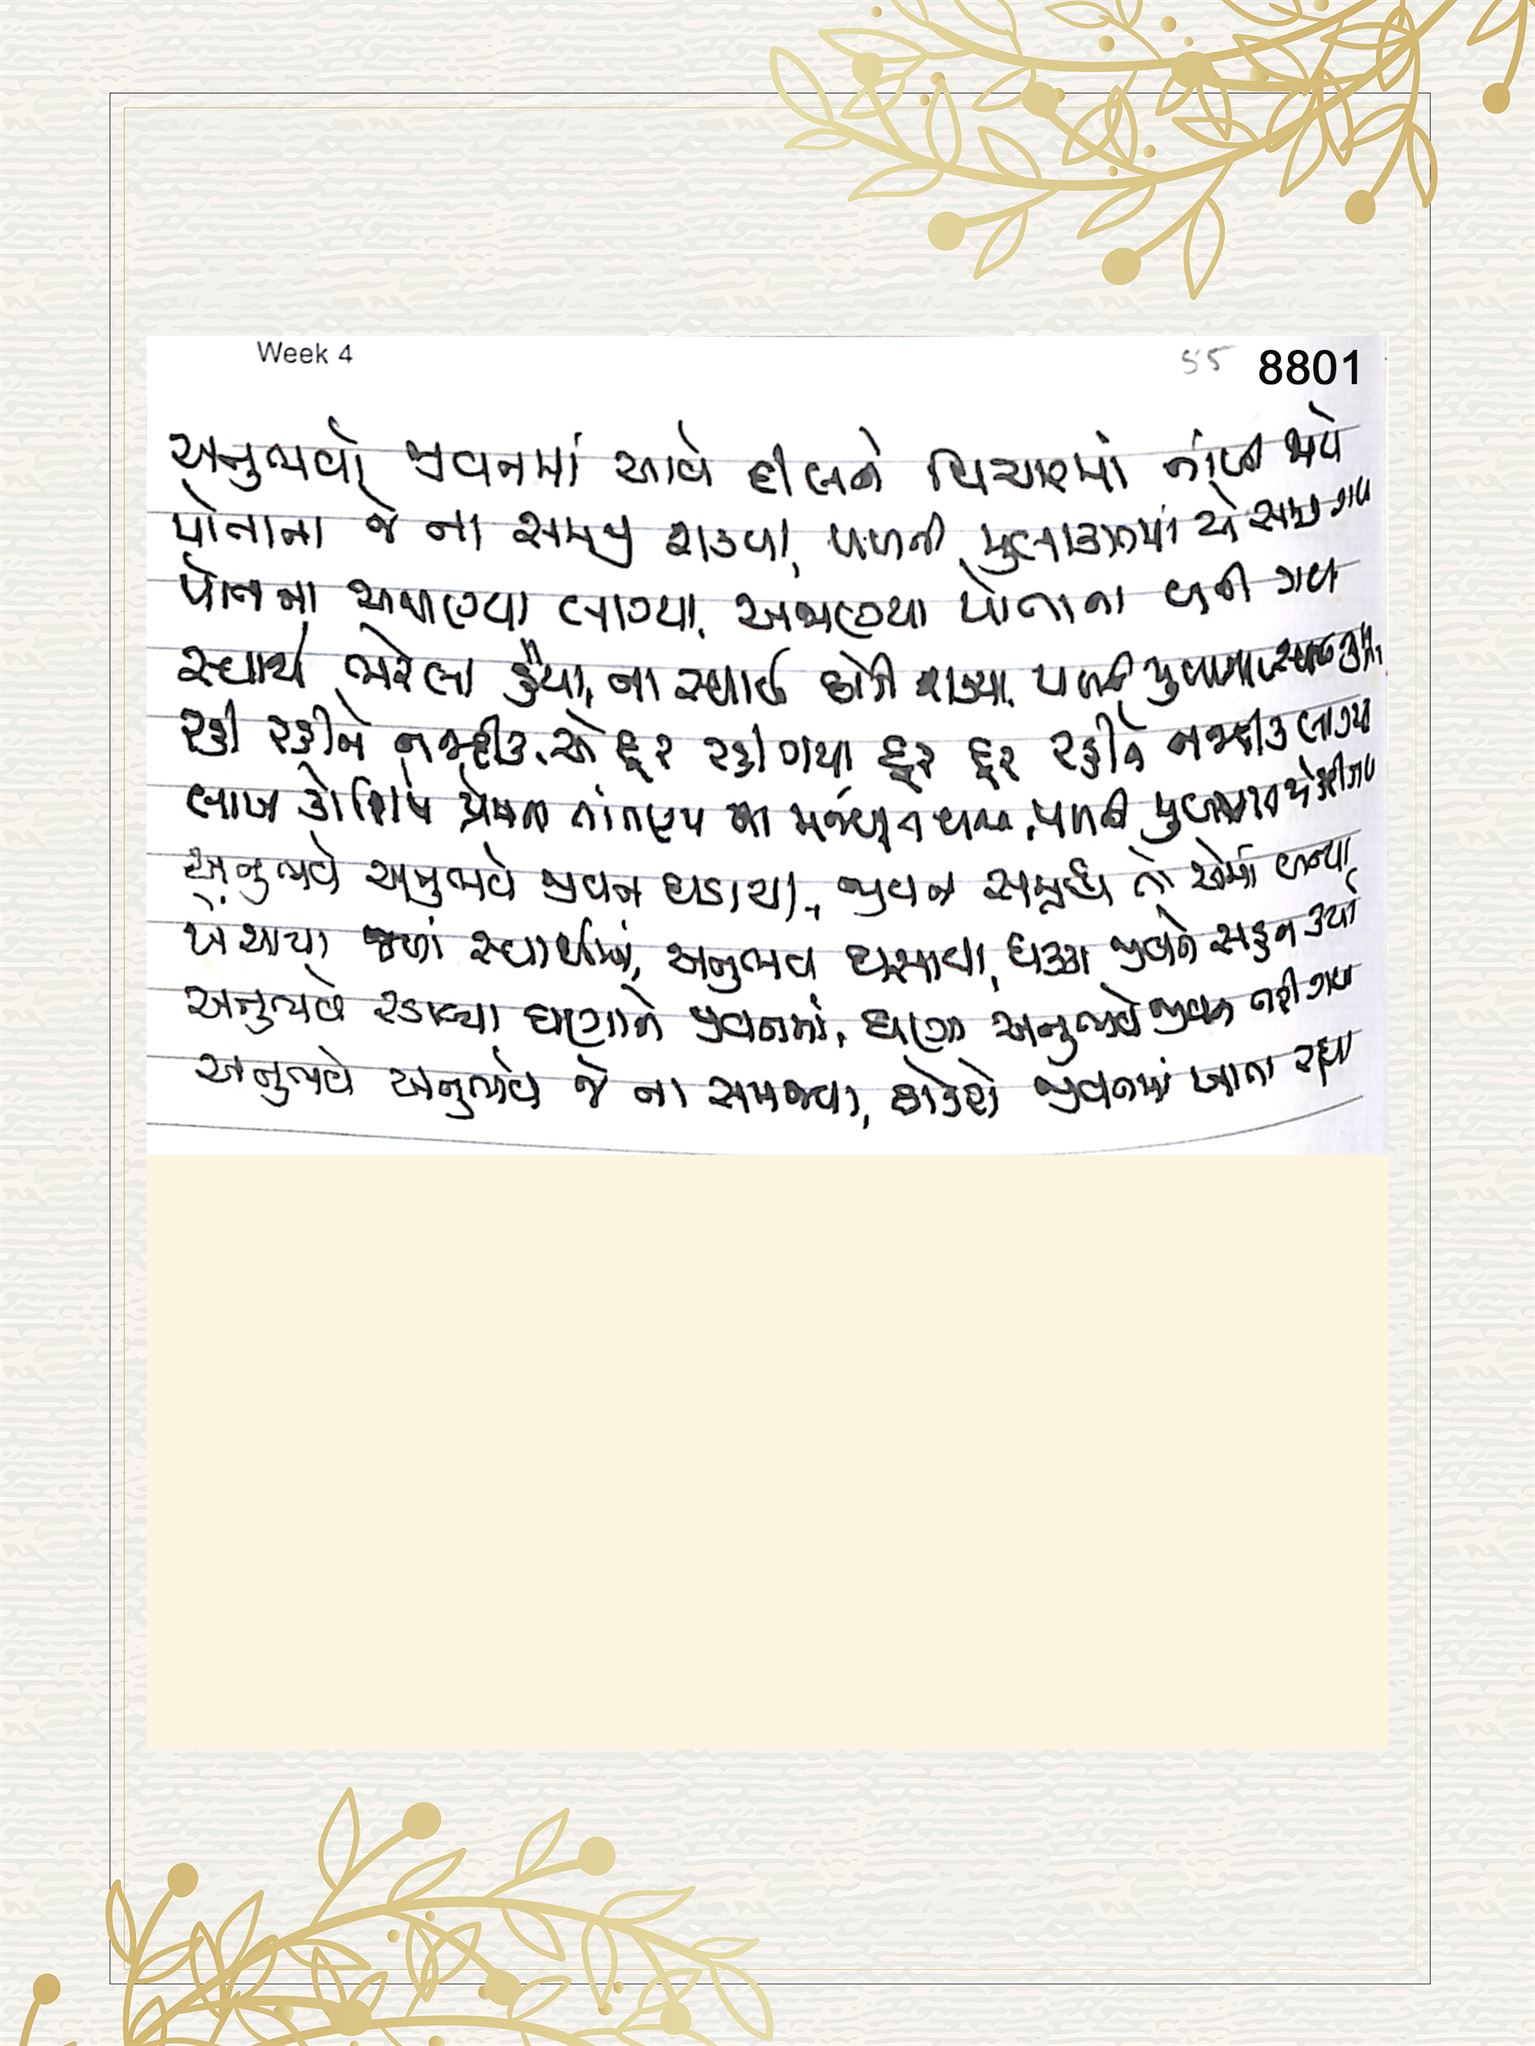 Week 4
55 8801
અનુભવો જીવનમાં આવે દીલને વિચારમાં નાંખી જાયે
પોતાના જે ના સમજી શક્યા, પળની મુલાકાતમાં એ સમજી ગયા
પોતાના અજાણ્યા લાગ્યા, અજાણ્યા પોતાના બની ગયા
સ્વાર્થ ભરેલા હૈયા, ના સ્વાર્થ છોડી શક્યા, પળની
રહી રહીને નજદીક, એ દૂર રહી ગયા દૂર દૂર રહીને નજદીક લાગ્યા
લાખ કોશિષે પ્રેમના તાંતણા ના મજબૂત થયા, પળની
અનુભવે અનુભવે જીવન ઘડાયા, જીવન સમૃધ્ધ તો એમાં બન્યા
ખેંચાયા જ્યાં સ્વાર્થમાં, અનુભવ ઘસાયા, ધક્કા જીવને સહન કર્યા
અનુભવે રડાવ્યા ઘણાને જીવનમાં, ઘણા અનુભવે જીવન તરી ગયા
અનુભવે અનુભવે જે ના સમજ્યા, ઠોકરો જીવનમાં ખાતા રહ્યા